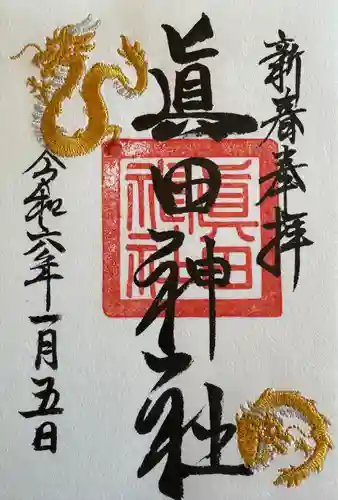 新春奉拝
眞田神社
眞田神社
令和六年一月五日